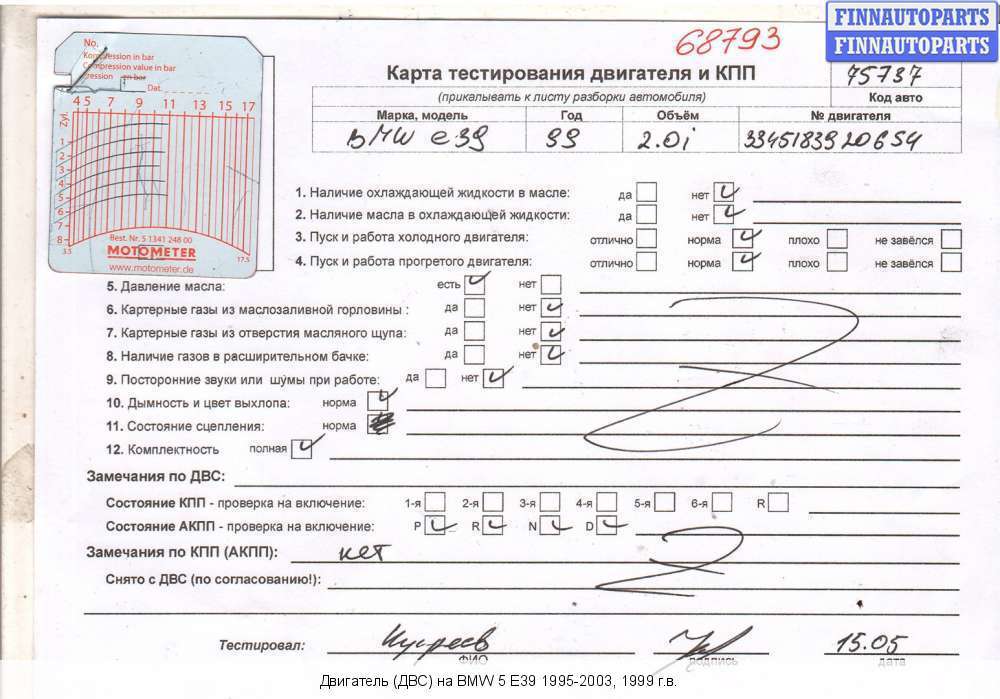 FINNAUTOPARTS
FINNAUTOPARTS
68793
75737
Код авто
No.
Kompression in bar
Compression value in bar
ression in bar
Dat.
4 5 7 9 11 13 15 17
Zyl.
1
2
3
4
5
6
7
8
3.5 17.5
Best. Nr. 5 1341 248 00
MOTOMETER
www.motometer.de
Карта тестирования двигателя и КПП
(прикалывать к листу разборки автомобиля)
Марка, модель Год Объём № двигателя
BMW e39 99 2.0i 33451839 206S4
1. Наличие охлаждающей жидкости в масле: да нет
2. Наличие масла в охлаждающей жидкости: да нет
3. Пуск и работа холодного двигателя: отлично норма плохо не завёлся
4. Пуск и работа прогретого двигателя: отлично норма плохо не завёлся
5. Давление масла: есть нет
6. Картерные газы из маслозаливной горловины : да нет
7. Картерные газы из отверстия масляного щупа: да нет
8. Наличие газов в расширительном бачке: да нет
9. Посторонние звуки или шумы при работе: да нет
10. Дымность и цвет выхлопа: норма
11. Состояние сцепления: норма
12. Комплектность полная
Замечания по ДВС:
Состояние КПП - проверка на включение: 1-я 2-я 3-я 4-я 5-я 6-я R
Состояние АКПП - проверка на включение: P R N D
Замечания по КПП (АКПП): нет
Снято с ДВС (по согласованию!):
Тестировал: 15.05
ФИО подпись дата
Двигатель (ДВС) на BMW 5 E39 1995-2003, 1999 г.в.